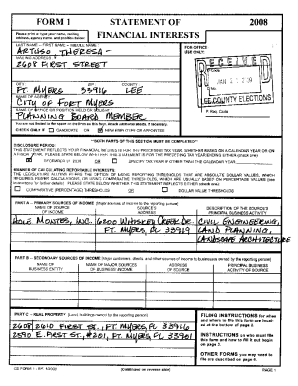 FORM 1 STATEMENT OF 2008
FINANCIAL INTERESTS
Please print or type your name, mailing address, agency name, and position below:
FOR OFFICE USE ONLY:
LAST NAME -- FIRST NAME -- MIDDLE NAME
ARTUSO, THERESA -
MAILING ADDRESS
2608 FIRST STREET
RECEIVED
CITY ZIP COUNTY
FT. MYERS 33916 LEE
NAME OF AGENCY
CITY OF FORT MYERS
LEE COUNTY ELECTIONS
NAME OF OFFICE OR POSITION HELD OR SOUGHT
PLANNING BOARD MEMBER
CHECK ONLY IF CANDIDATE OR NEW EMPLOYEE OR APPOINTEE
**BOTH PARTS OF THIS SECTION MUST BE COMPLETED**
DISCLOSURE PERIOD:
DECEMBER 31, 2008
MANNER OF CALCULATING REPORTABLE INTERESTS:
COMPARATIVE (PERCENTAGE) THRESHOLDS OR DOLLAR VALUE THRESHOLDS
PART A -- PRIMARY SOURCES OF INCOME
NAME OF SOURCE OF INCOME
SOURCE'S ADDRESS
DESCRIPTION OF THE SOURCE'S PRINCIPAL BUSINESS ACTIVITY
HOLE MONTES, INC. 6200 WHISKEY CREEK DR. CIVIL ENGINEERING,
FT. MYERS, FL 33919 LAND PLANNING,
LANDSCAPE ARCHITECTURE
PART B -- SECONDARY SOURCES OF INCOME
NAME OF BUSINESS ENTITY
NAME OF MAJOR SOURCES OF BUSINESS' INCOME
ADDRESS OF SOURCE
PRINCIPAL BUSINESS ACTIVITY OF SOURCE
PART C -- REAL PROPERTY
2608/2610 FIRST ST., FT. MYERS, FL 33916
2590 E. FIRST ST., #201, FT. MYERS, FL 33901
FILING INSTRUCTIONS for when and where to file this form are located at the bottom of page 2.
INSTRUCTIONS on who must file this form and how to fill it out begin on page 3.
OTHER FORMS you may need to file are described on page 6.
CE FORM 1 (Continued on reverse side) PAGE 1